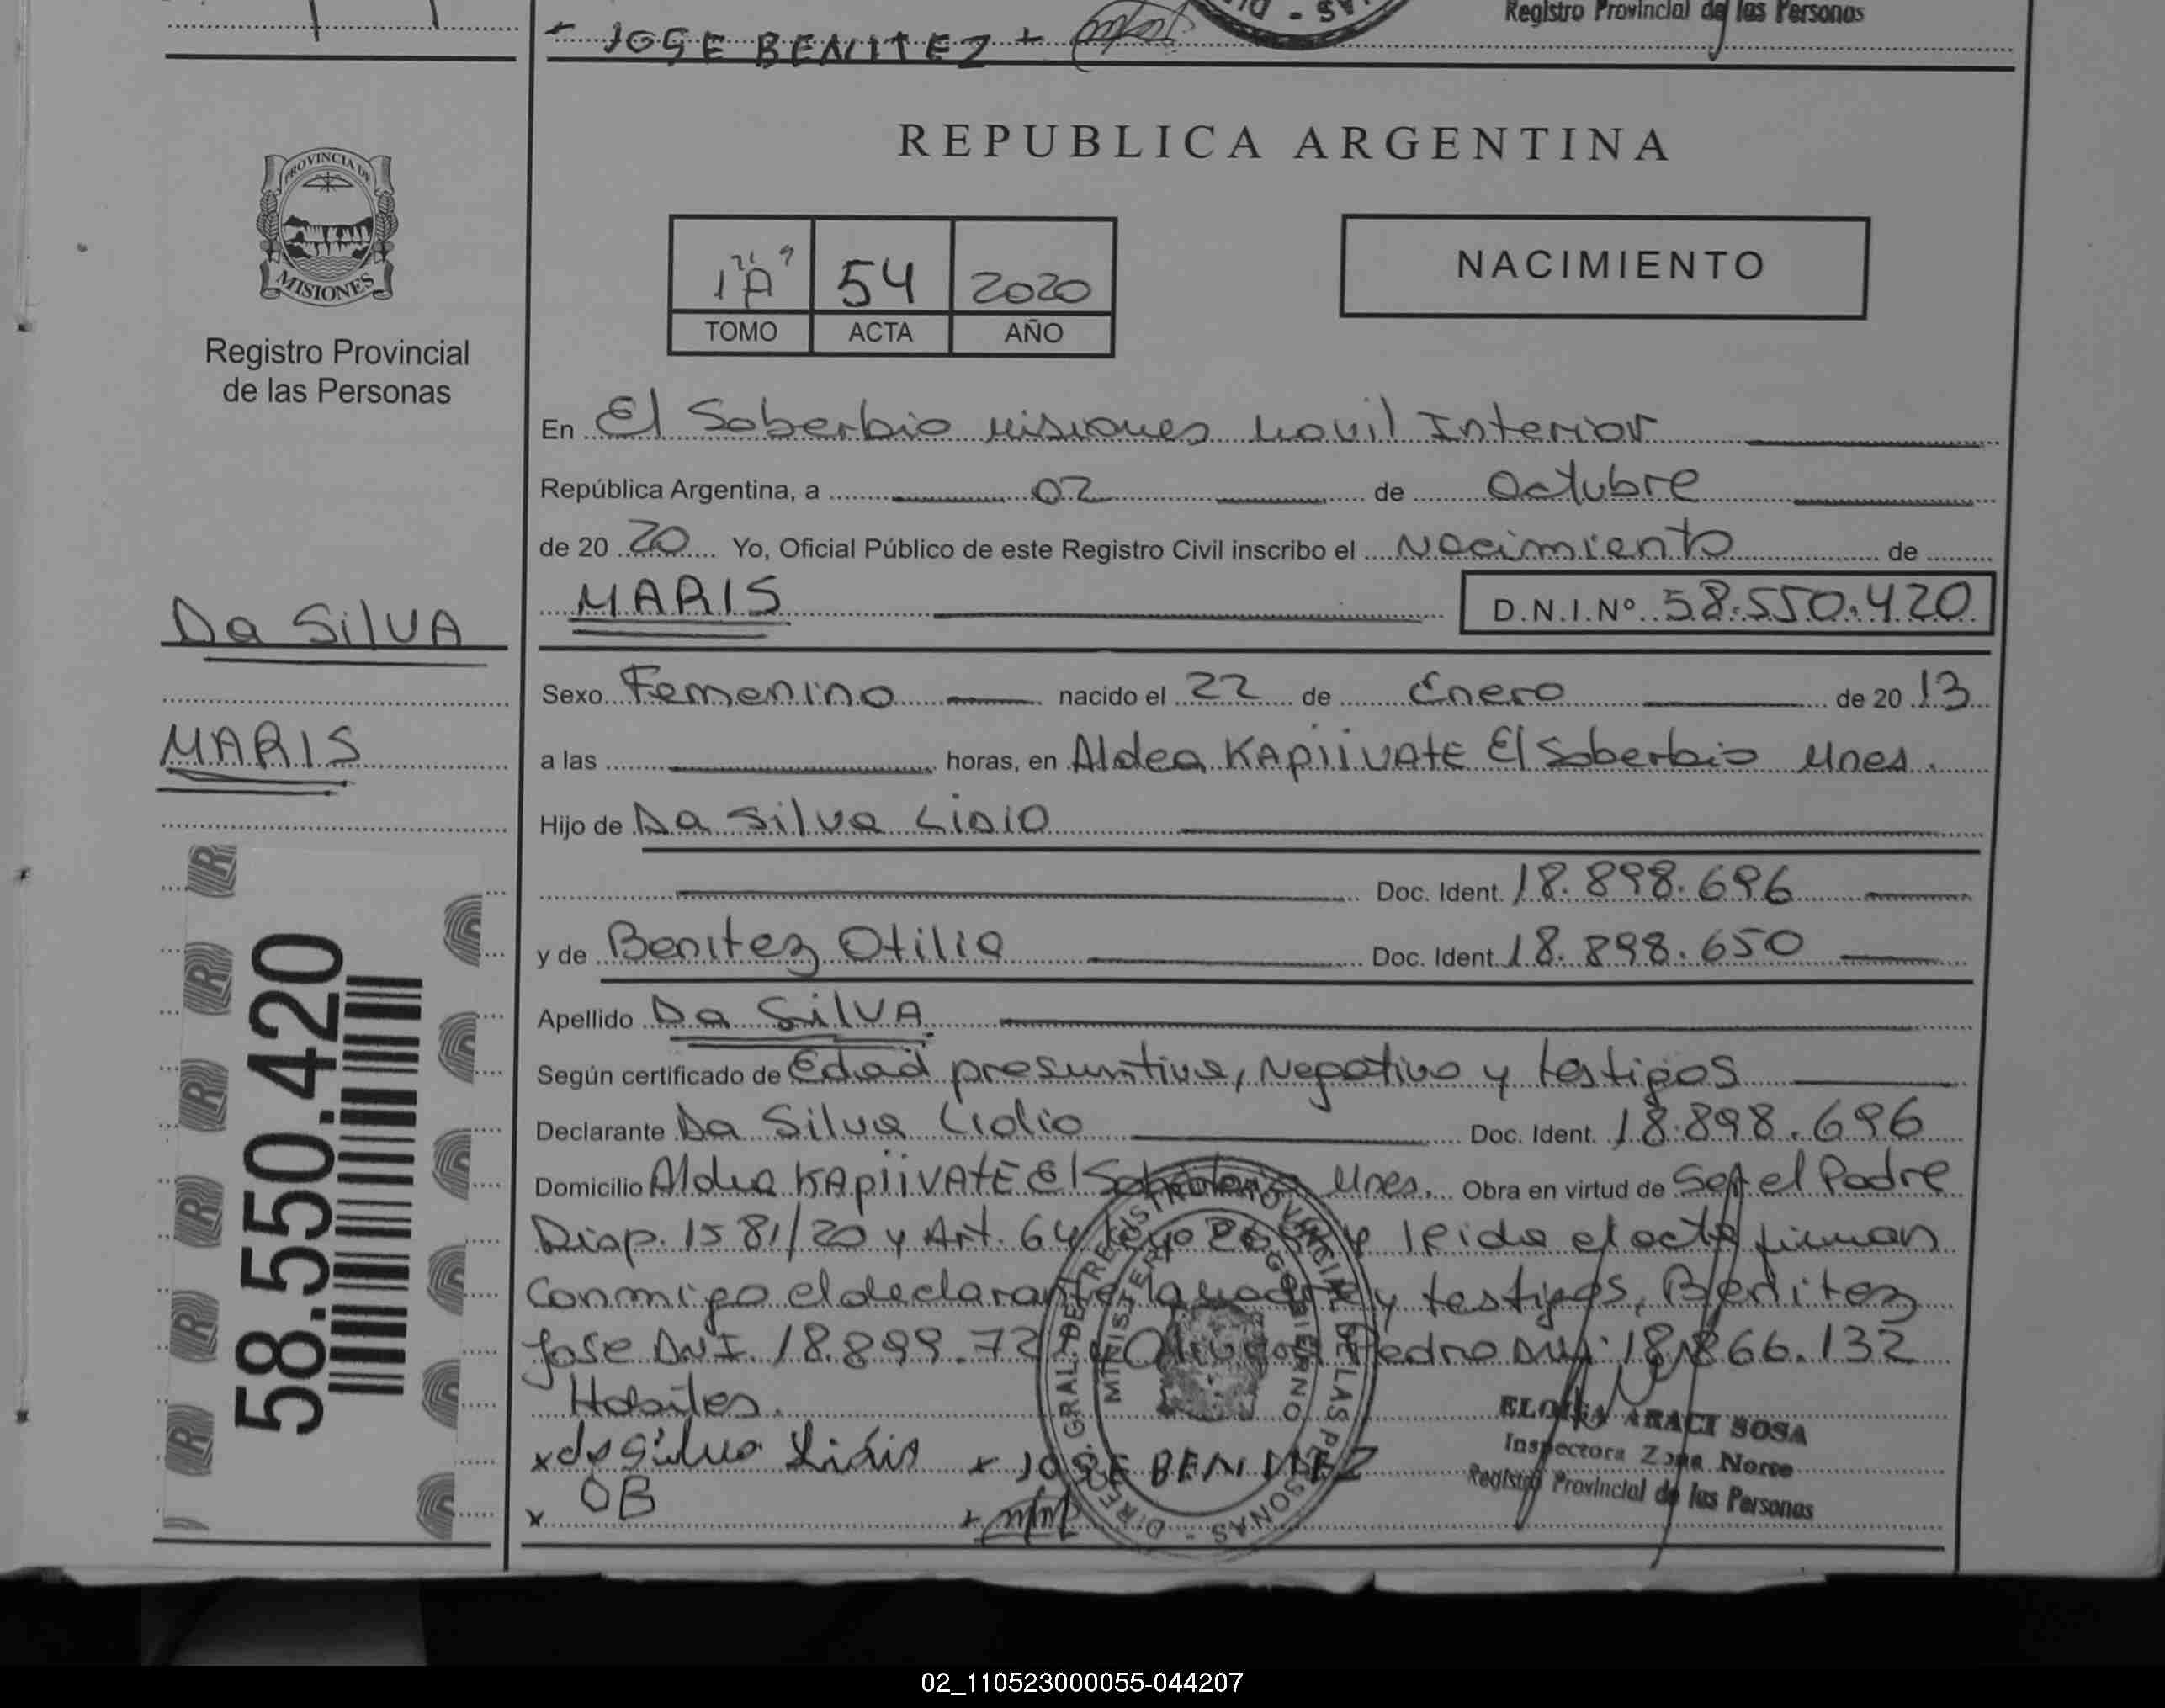 - JOSE BENITEZ +
Registro Provincial de las Personas
PROVINCIA DE
MISIONES
Registro Provincial
de las Personas
REPUBLICA ARGENTINA
1 "A" 54 2020
TOMO ACTA AÑO
NACIMIENTO
En El Soberbio Misiones Movil Interior
República Argentina, a 02 de Octubre
de 20 20 Yo, Oficial Público de este Registro Civil inscribo el Nacimiento de
MARIS D.N.I.Nº 58.550.420
Da SilVA
MARIS
Sexo Femenino nacido el 22 de Enero de 20 13
a las horas, en Aldea KApiiVAtE El Soberbio Mnes.
Hijo de Da Silva LiDiO
Doc. Ident. 18.898.696
y de Benitez Otilia Doc. Ident. 18.898.650
Apellido Da SilVA
Según certificado de Edad presuntiva, Negativo y testigos
Declarante Da Silva Lidio Doc. Ident. 18.898.696
Domicilio Aldea KApiiVAtE El Soberbio Mnes. Obra en virtud de Ser el Padre
Disp. 1581/20 y Art. 64 y leida el acta firman
Conmigo el declarante, la madre y testigos, Benitez
Jose DNI. 18.899.72 Pedro DNI: 18.866.132
Habiles.
x da Silva Lidio x JOSE BENITEZ
x OB +
ELOISA ARACI SOSA
Inspectora Zona Norte
Registro Provincial de las Personas
DIREC. GRAL. DE REGISTRO PROVINCIAL DE LAS PERSONAS -
MINISTERIO GOBIERNO
58.550.420
02_110523000055-044207